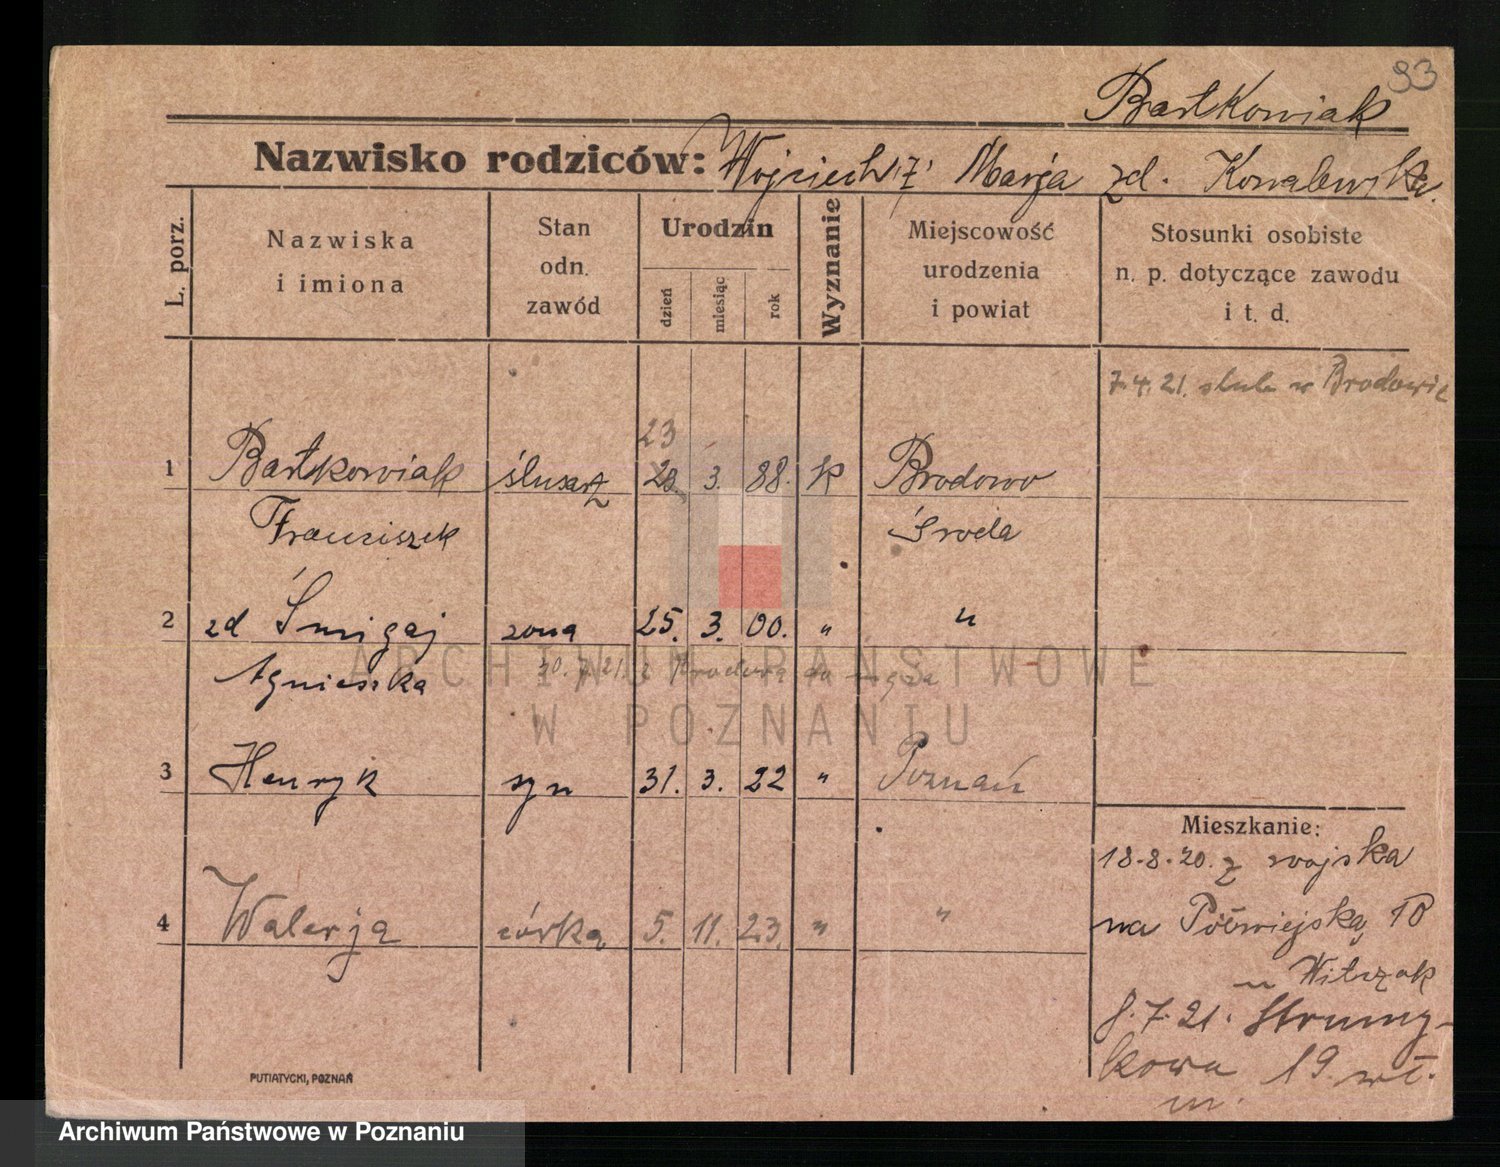 93
Bartkowiak
Nazwisko rodziców: Wojciech i Marja zd. Kowalewska.
L. porz.
Nazwiska
i imiona
Stan
odn.
zawód
Urodzin
dzień
miesiąc
rok
Wyznanie
Miejscowość
urodzenia
i powiat
Stosunki osobiste
n. p. dotyczące zawodu
i t. d.
7.4.21. ślub w Brodowie
23
1 Bartkowiak ślusarz 3. 88. k Brodowo
Franciszek Środa
2 zd Śmigaj żona 25. 3. 00. " "
Agnieszka 30.7.21. z Brodowa do
3 Henryk syn 31. 3. 22 " Poznań
4 Walerja córka 5. 11. 23. " "
Mieszkanie:
18-8-20. z wojska
na Półwiejską 10
u Witczak
8.7.21. Strumy-
kowa 19 wł.
m.
PUTIATYCKI, POZNAŃ
ARCHIWUM PAŃSTWOWE
W POZNANIU
Archiwum Państwowe w Poznaniu